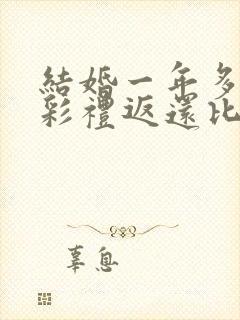 結婚一年多
彩禮返還比
辜息